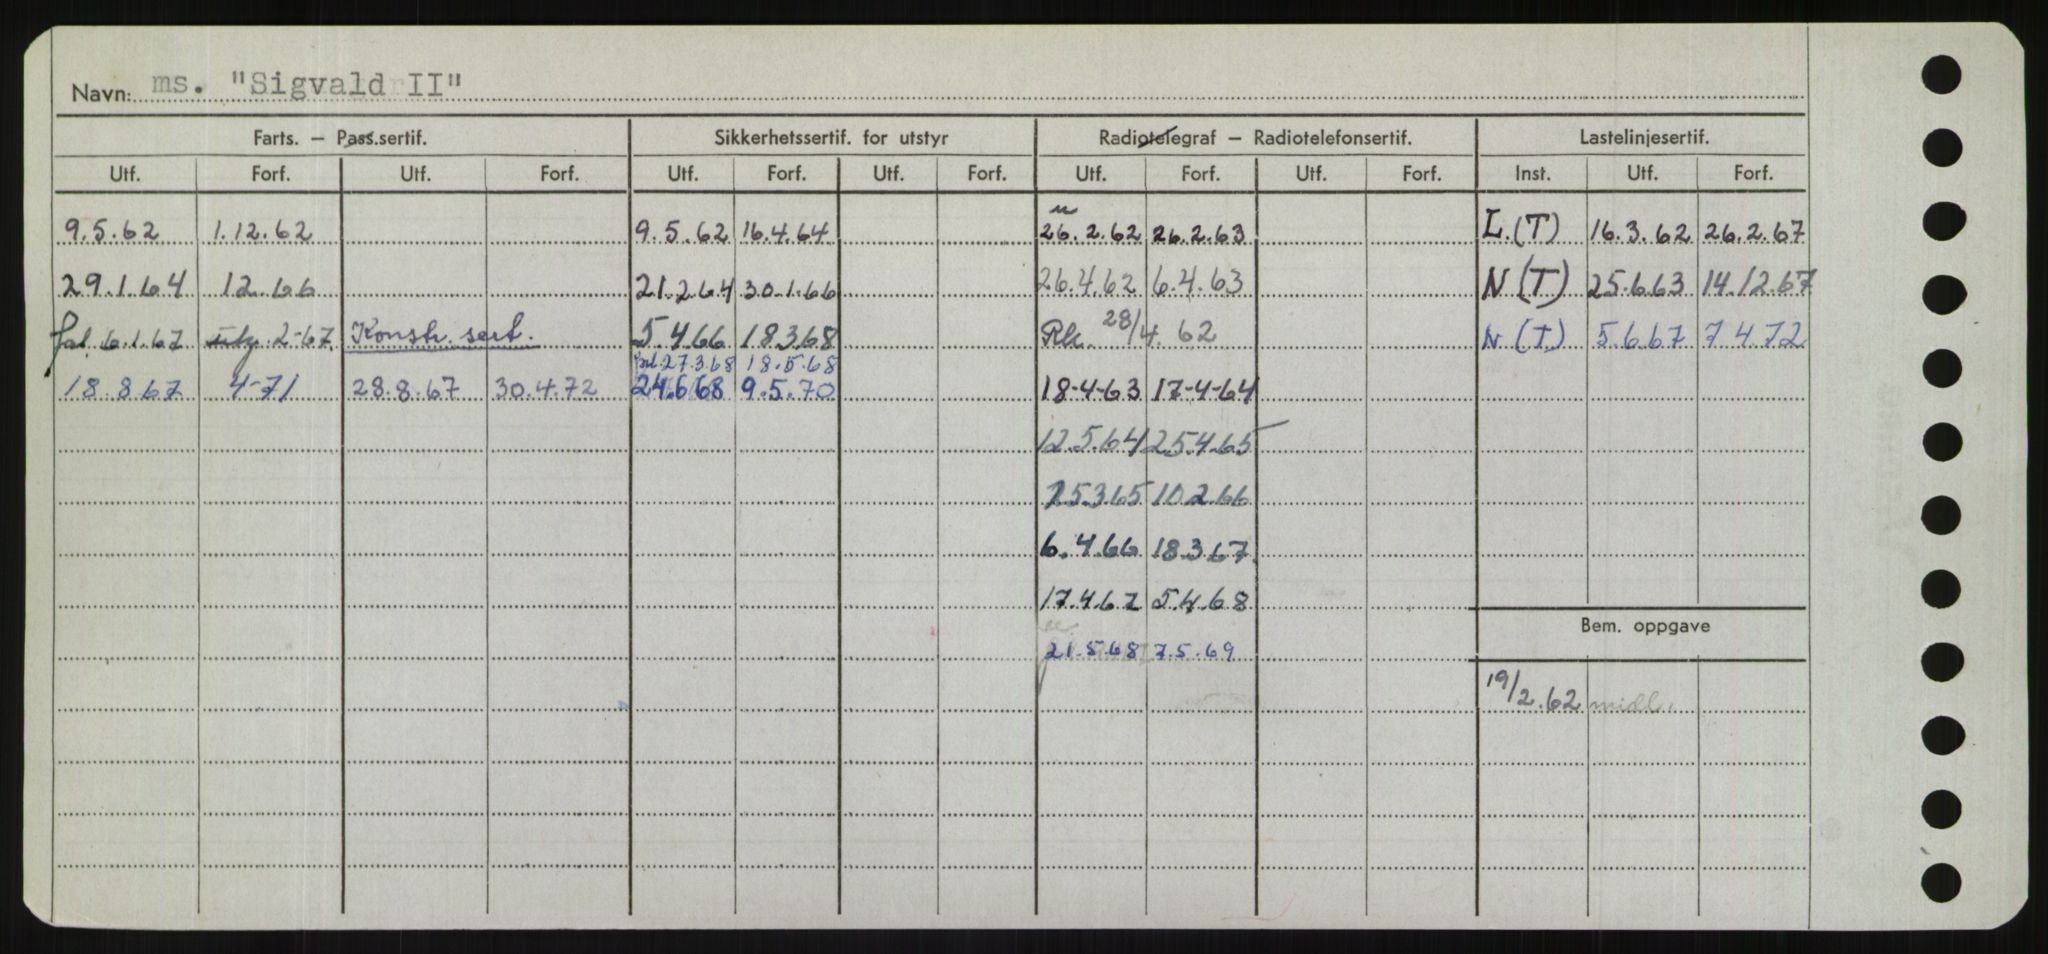 Navn: ms. "Sigvald II"
Farts. — Pass.sertif. Sikkerhetssertif. for utstyr Radiotelegraf — Radiotelefonsertif. Lastelinjesertif.
Utf. Forf. Utf. Forf. Utf. Forf. Utf. Forf. Utf. Forf. Utf. Forf. Inst. Utf. Forf.
9.5.62 1.12.62 9.5.62 16.4.64 26.2.62 26.2.63 L.(T) 16.3.62 26.2.67
29.1.64 12.66 21.2.64 30.1.66 26.4.62 6.4.63 N(T) 25.6.63 14.12.67
6.1.67 2-67 Konstr. sert. 5.4.66 18.3.68 28/4.62 N(T) 5.6.67 7.4.72
27.3.68 18.5.68
18.8.67 4-71 28.8.67 30.4.72 24.6.68 9.5.70 18-4-63 17-4-64
12.5.64 25.4.65
25.3.65 10.2.66
6.4.66 18.3.67
17.4.67 5.4.68
Bem. oppgave
21.5.68 7.5.69
19/2.62 midl.